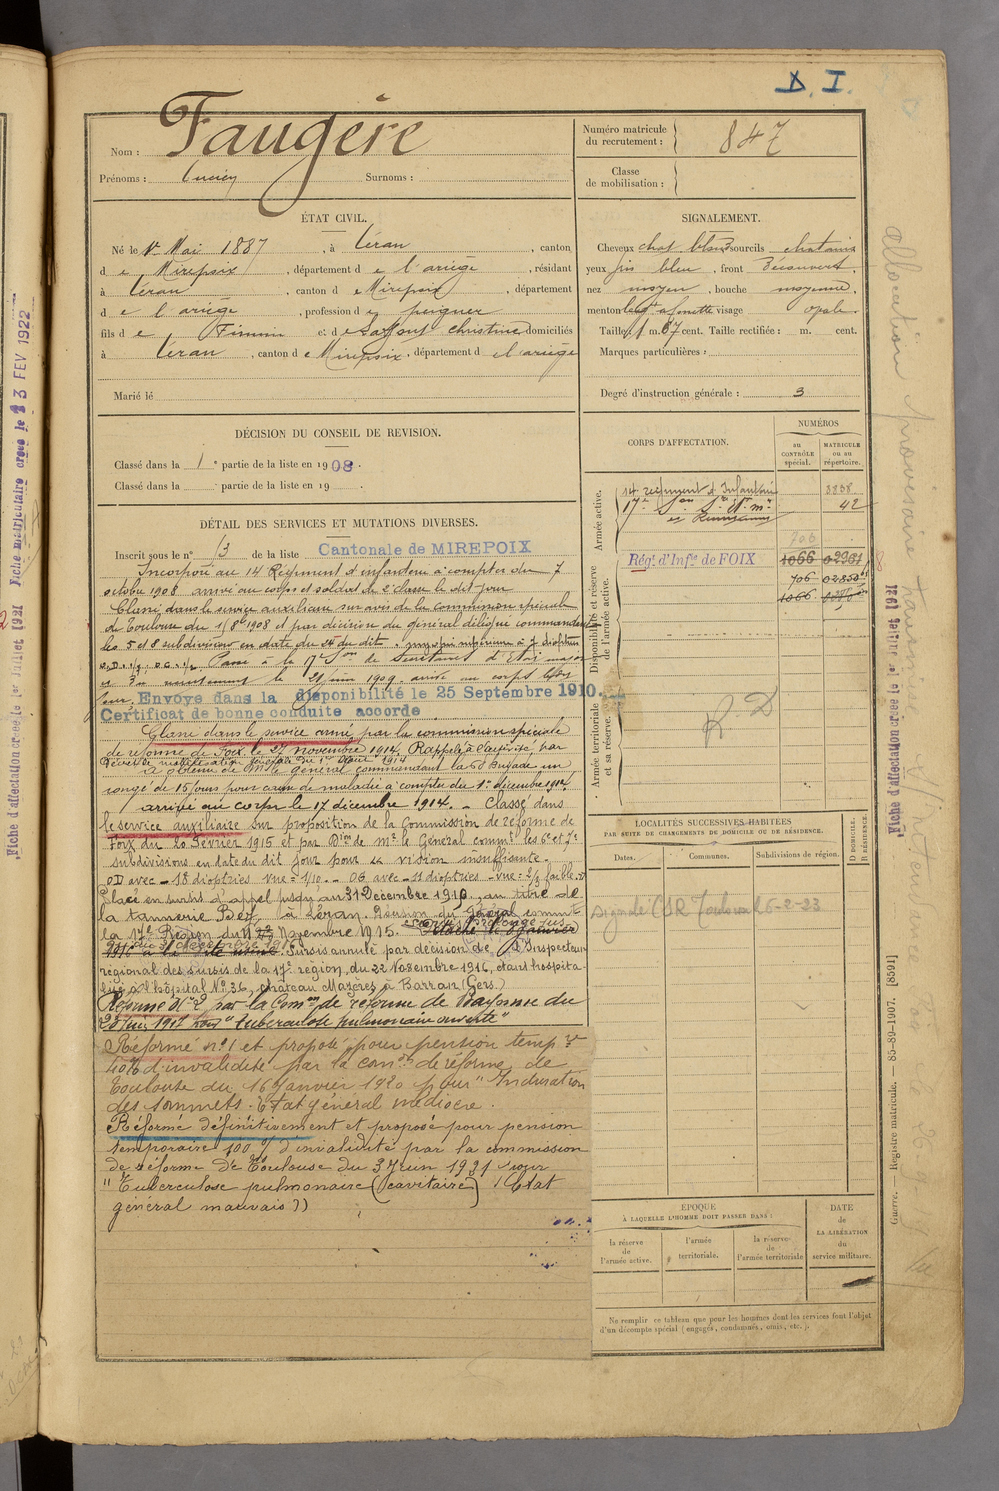 D. I.
Nom : Faugère
Prénoms : Lucien Surnoms :
Numéro matricule du recrutement : 847
Classe de mobilisation :
ÉTAT CIVIL.
Né le 1er Mai 1887, à Léran, canton
de Mirepoix, département de l'ariège, résidant
à Léran, canton de Mirepoix, département
de l'ariège, profession de peigner
fils de Firmin et de Laffont Christine domiciliés
à Léran, canton de Mirepoix, département de l'ariège
Marié le
SIGNALEMENT.
Cheveux chat. sourcils chatains
yeux gris bleu, front Découvert,
nez moyen, bouche moyenne,
menton à fossette visage ovale.
Taille 1 m. 67 cent. Taille rectifiée : m. cent.
Marques particulières :
Degré d'instruction générale : 3
DÉCISION DU CONSEIL DE REVISION.
Classé dans la 1e partie de la liste en 1908.
Classé dans la partie de la liste en 19 .
DÉTAIL DES SERVICES ET MUTATIONS DIVERSES.
Inscrit sous le n° 13 de la liste Cantonale de MIREPOIX
Incorporé au 14 Régiment d'infanterie à compter du 7
octobre 1908 arrivé au corps et soldat de 2e classe le dit jour
Classé dans le service auxiliaire sur avis de la Commission spéciale
de Toulouse du 1/8bre 1908 et par décision du général délégué commandant
les 5 et 8 subdivisions en date du 24 du dit. myopie supérieure à 7 dioptries
Passé à la 17e Son de Secrétaires d'Etat major
et du recrutement le 21 juin 1909. arrivé au corps le dit
jour. Envoyé dans la disponibilité le 25 Septembre 1910.
Certificat de bonne conduite accordé
Classé dans le service armé par la commission spéciale
de réforme de Foix le 27 novembre 1914. Rappelé à l'activité par
Décret de mobilisation générale du 1er Août 1914
a obtenu de Mr le général commandant la 68 Brigade un
congé de 15 jours pour cause de maladie à compter du 1er décembre 1914
arrivé au corps le 17 décembre 1914. - Classé dans
le service auxiliaire sur proposition de la Commission de réforme de
Foix du 20 Février 1915 et par Don de Mr le Général commt les 6e et 7e
subdivisions en date du dit jour pour vision insuffisante.
OD avec - 18 dioptries vue = 1/10 - OG avec - 11 dioptries - vue = 2/3 faible.
Placé en sursis d'appel jusqu'au 31 Décembre 1916 au titre de
la tannerie Bez, à Léran. Décision du général commt
la 17e Région du Novembre 1915.
Sursis annulé par décision de l'Inspecteur
régional des sursis de la 17e région, du 22 Novembre 1916, étant hospita-
lisé à l'hôpital No 36, château Mazères à Barran (Gers)
Réformé N° 2 par la Comon de réforme de Bayonne du
1917 pour "tuberculose pulmonaire ouverte"
Réformé n° 1 et proposé pour pension tempre
40% d'invalidité par la comon de réforme de
Toulouse du 16 Janvier 1920 pour "Induration
des sommets. Etat général médiocre.
Réformé définitivement et proposé pour pension
temporaire 100 % d'invalidité par la commission
de réforme de Toulouse du 3 Juin 1921 pour
"Tuberculose pulmonaire (cavitaire) (Etat
général mauvais))
CORPS D'AFFECTATION.
NUMÉROS
au CONTRÔLE spécial.
MATRICULE ou au répertoire.
Armée active.
14 régiment d'Infanterie 3838
17e Son Sre d'Et. mr 42
et Recrutement
Disponibilité et réserve de l'armée active.
706
Régt d'Infie de FOIX 1066 02961
706 02850
1066
Armée territoriale et sa réserve.
R. D
LOCALITÉS SUCCESSIVES HABITÉES
PAR SUITE DE CHANGEMENTS DE DOMICILE OU DE RÉSIDENCE.
Dates. Communes. Subdivisions de région.
D DOMICILE. R RÉSIDENCE.
signalé CSR Toulouse le 6-2-23
ÉPOQUE
À LAQUELLE L'HOMME DOIT PASSER DANS :
la réserve de l'armée active.
l'armée territoriale.
la réserve de l'armée territoriale
DATE de LA LIBÉRATION du service militaire.
Ne remplir ce tableau que pour les hommes dont les services font l'objet
d'un décompte spécial (engagés, condamnés, omis, etc.).
Fiche d'affectation créée le 1er Juillet 1921
Guerre. — Registre matricule. — 85-89-1907. [8591]
allocation provisoire
Fiche d'affectation créée le 1er Juillet 1921 Fiche matriculaire créée le 13 FEV 1922